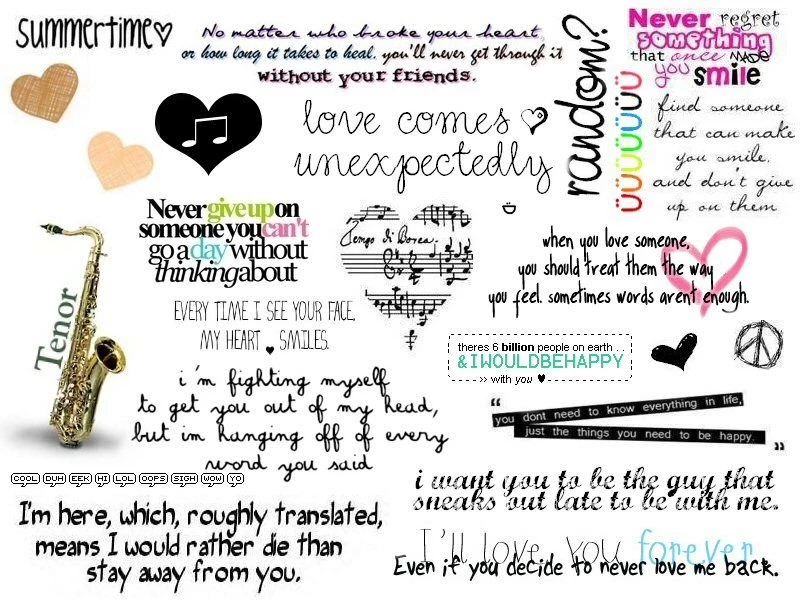 summertime
No matter who broke your heart,
or how long it takes to heal. you'll never get through it
without your friends.
random?
Never regret
something
that once MADE
you smile
find someone
that can make
you smile.
and don't give
up on them
love comes
unexpectedly
Never give up on
someone you can't
go a day without
thinking about
Tempo di Borea.
when you love someone,
you should treat them the way
you feel. sometimes words arent enough.
Tenor
EVERY TIME I SEE YOUR FACE,
MY HEART SMILES.
theres 6 billion people on earth . . .
&IWOULDBEHAPPY
>> with you ♥
i'm fighting myself
to get you out of my head,
but im hanging off of every
word you said
“ you dont need to know everything in life,
just the things you need to be happy. ”
COOL DUH EEK HI LOL OOPS SIGH WOW YO
i want you to be the guy that
sneaks out late to be with me.
I'm here, which, roughly translated,
means I would rather die than
stay away from you.
I'll love you forever
Even if you decide to never love me back.